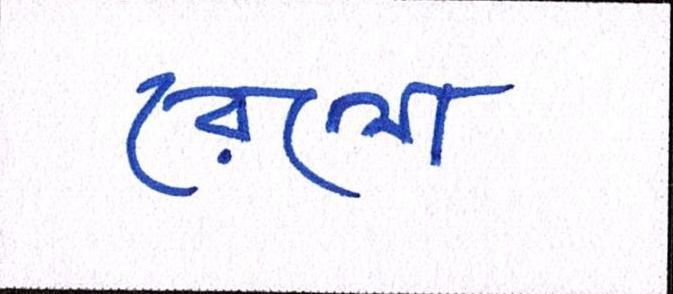 রেখো